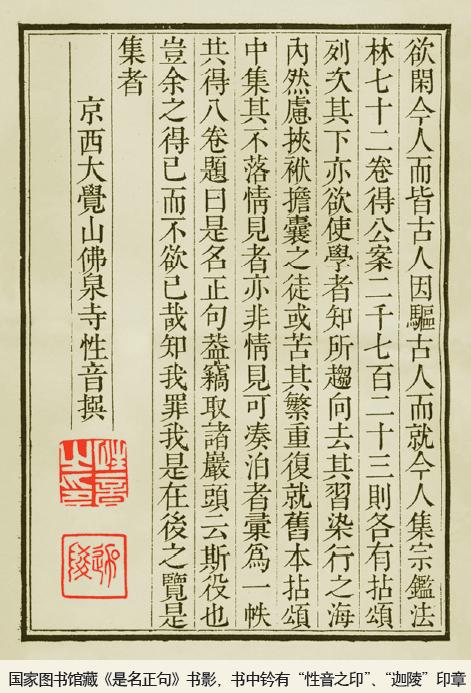 欲閑今人而皆古人因驅古人而就今人集宗鑑法
林七十二卷得公案二千七百二十三則各有拈頌
列次其下亦欲使學者知所趨向去其習染行之海
內然慮挾袱擔囊之徒或苦其繁重復就舊本拈頌
中集其不落情見者亦非情見可凑泊者彙為一帙
共得八卷題曰是名正句葢竊取諸嚴頭云斯役也
豈余之得已而不欲已哉知我罪我是在後之覽是
集者
京西大覺山佛泉寺性音撰
性音之印
迦陵
国家图书馆藏《是名正句》书影，书中钤有“性音之印”、“迦陵”印章